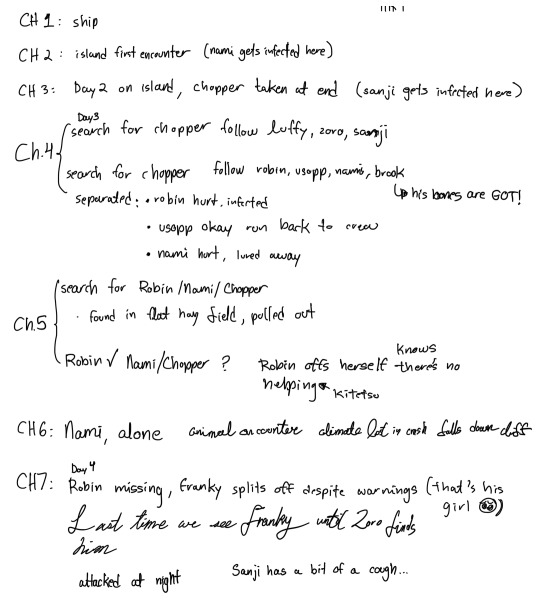 CH 1: ship
CH 2: island first encounter (nami gets infected here)
CH 3: Day 2 on island, chopper taken at end (sanji gets infected here)
Day 3
Ch.4 search for chopper follow luffy, zoro, sanji
search for chopper follow robin, usopp, nami, brook
↳ his bones are GOT!
separated: • robin hurt, infected
• usopp okay run back to crew
• nami hurt, lured away
Ch.5 search for Robin/Nami/Chopper
• found in flat hay field, pulled out
Robin ✓ Nami/Chopper ? Robin offs herself knows there's no
helping Kitetsu
CH6: Nami, alone animal encounter climate falls down cliff
Day 4
CH7: Robin missing, Franky splits off despite warnings (that's his
girl)
Last time we see Franky until Zoro finds
him
attacked at night Sanji has a bit of a cough...